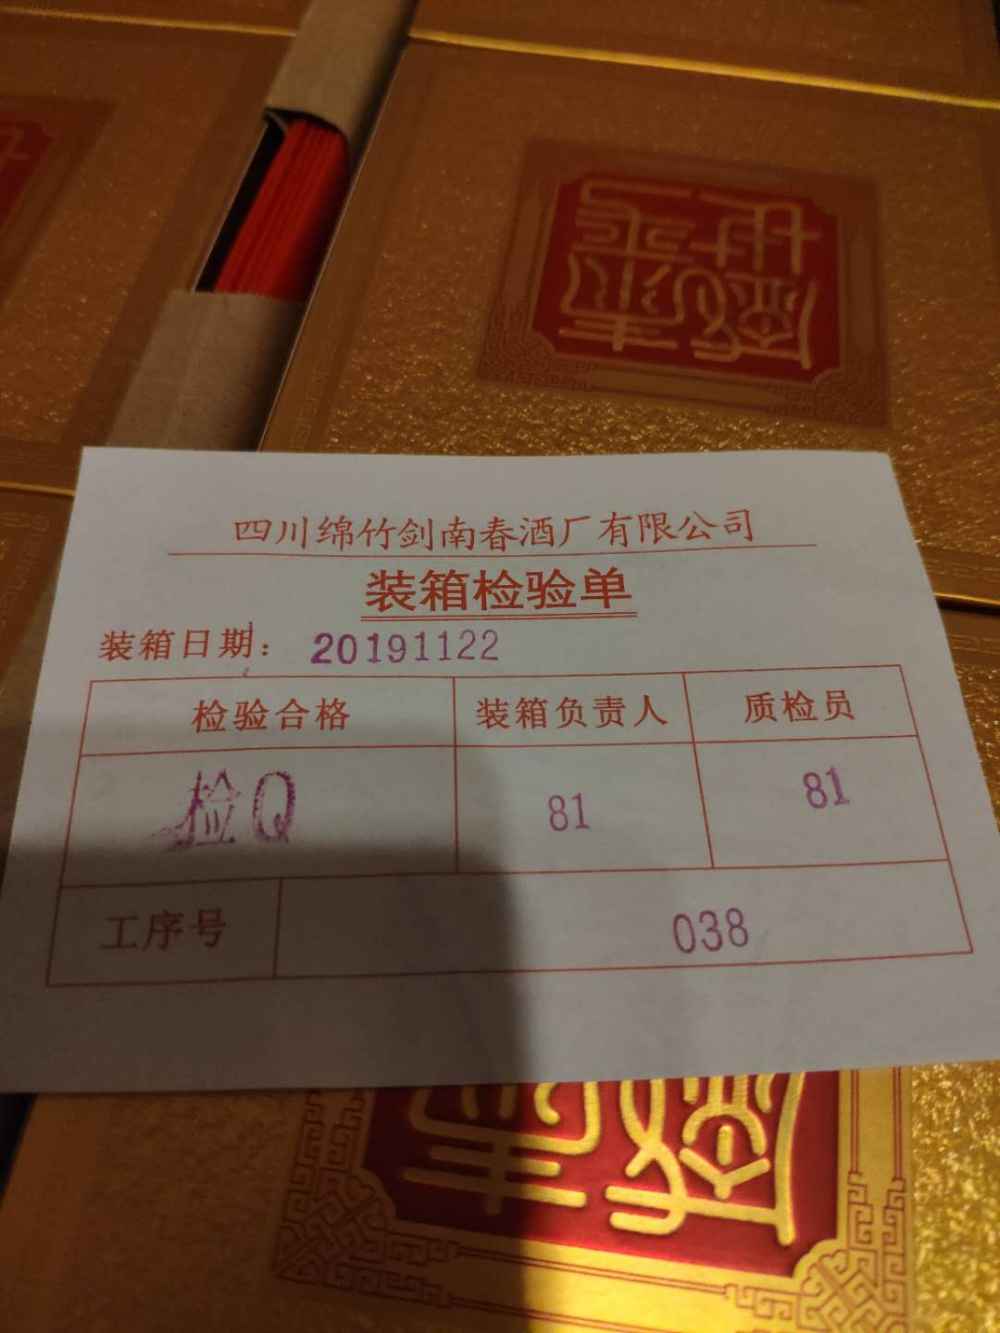 四川绵竹剑南春酒厂有限公司
装箱检验单
装箱日期： 20191122
检验合格 装箱负责人 质检员
检Q 81 81
工序号 038